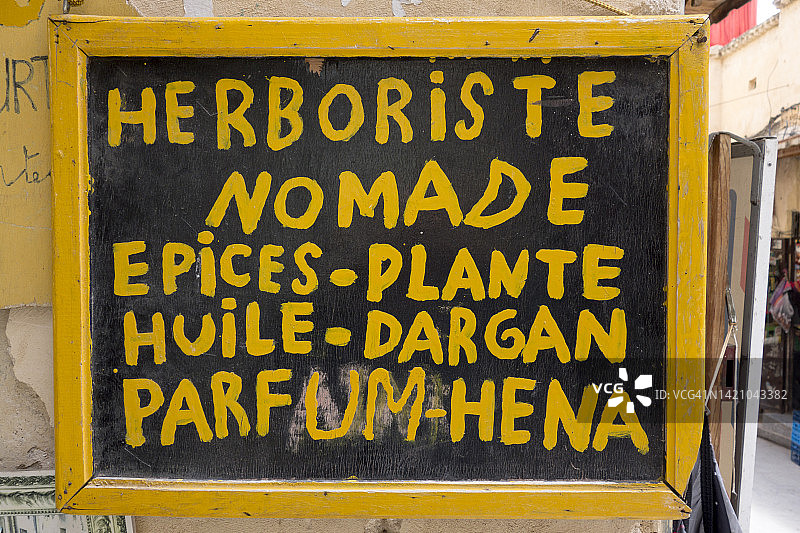 HERBORiSTE
NOMADE
EPiCES-PLANTE
HUiLE-DARGAN
PARFUM-HENA
URT
VCG
VCG41N1421043382